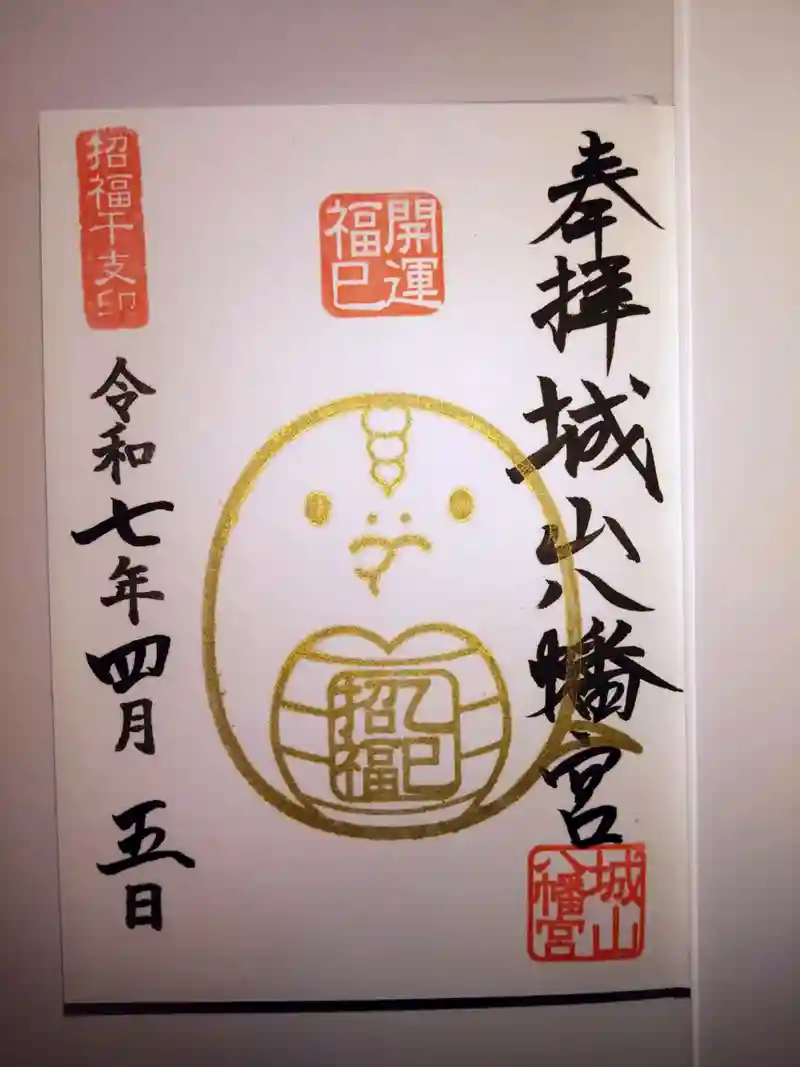 奉拝 城山八幡宮
城山
八幡宮
開運
福巳
乙巳
招福
招福干支印
令和七年四月 五日